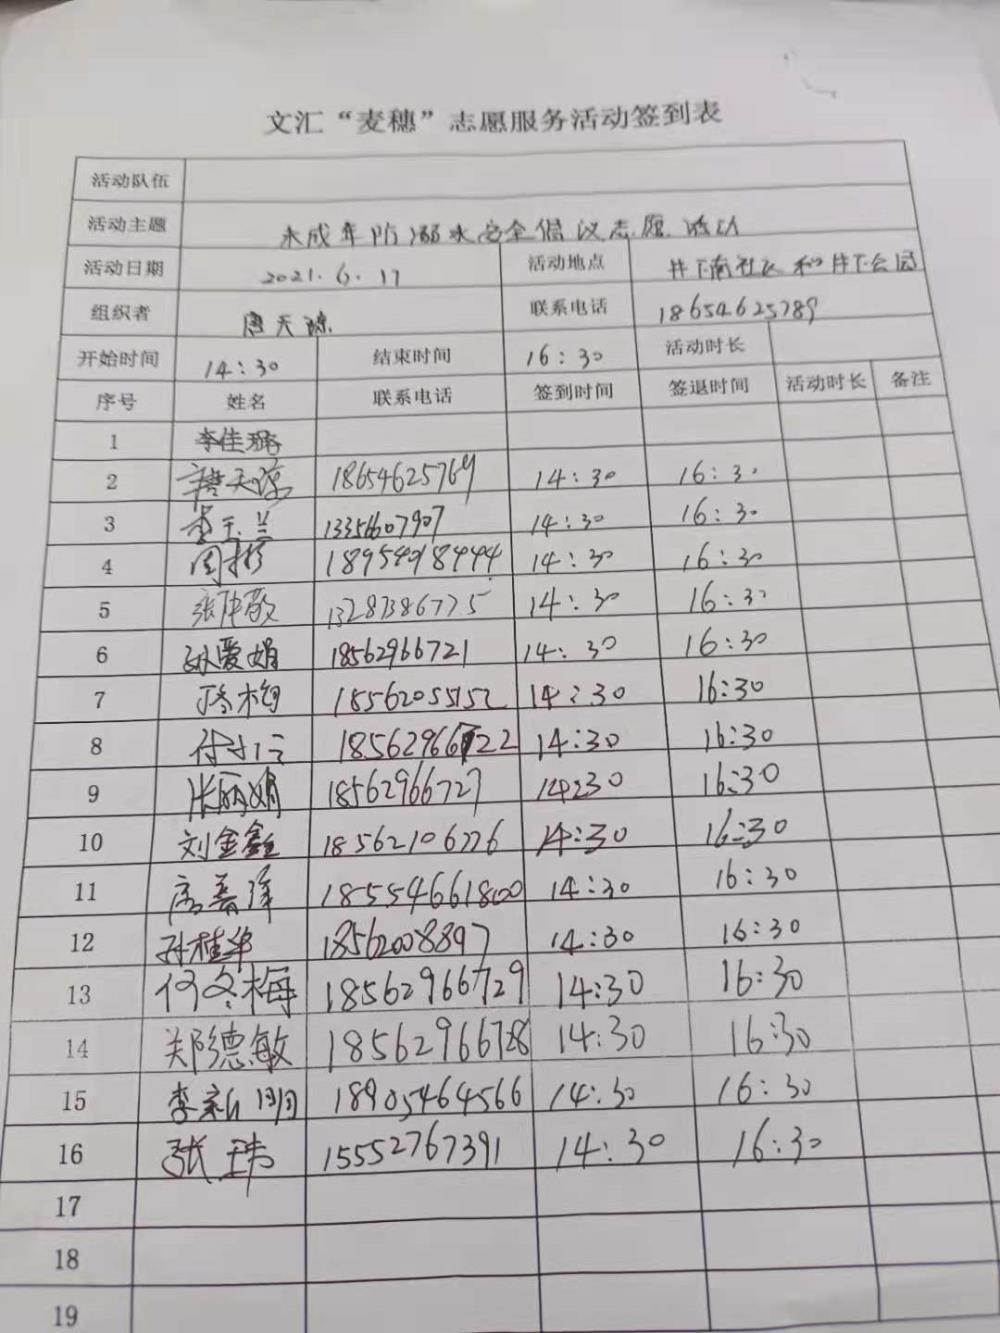 文汇“麦穗”志愿服务活动签到表
活动队伍
活动主题 未成年防溺水安全倡议志愿活动
活动日期 2021.6.17 活动地点 井下南社区和井下公园
组织者 唐天琼 联系电话 18654625789
开始时间 14:30 结束时间 16:30 活动时长
序号 姓名 联系电话 签到时间 签退时间 活动时长 备注
1 李佳璐
2 唐天琼 18654625769 14:30 16:30
3 李玉兰 13356607907 14:30 16:30
4 14:30 16:30
5 13287386775 14:30 16:30
6 孙爱娟 18562966721 14:30 16:30
7 18562055152 14:30 16:30
8 18562966722 14:30 16:30
9 张丽娟 18562966727 14:30 16:30
10 刘金鑫 18562106776 14:30 16:30
11 18554661800 14:30 16:30
12 孙桂华 18562008897 14:30 16:30
13 何冬梅 18562966729 14:30 16:30
14 郑德敏 18562966728 14:30 16:30
15 李新明 18905464566 14:30 16:30
16 张玮 15552767391 14:30 16:30
17
18
19